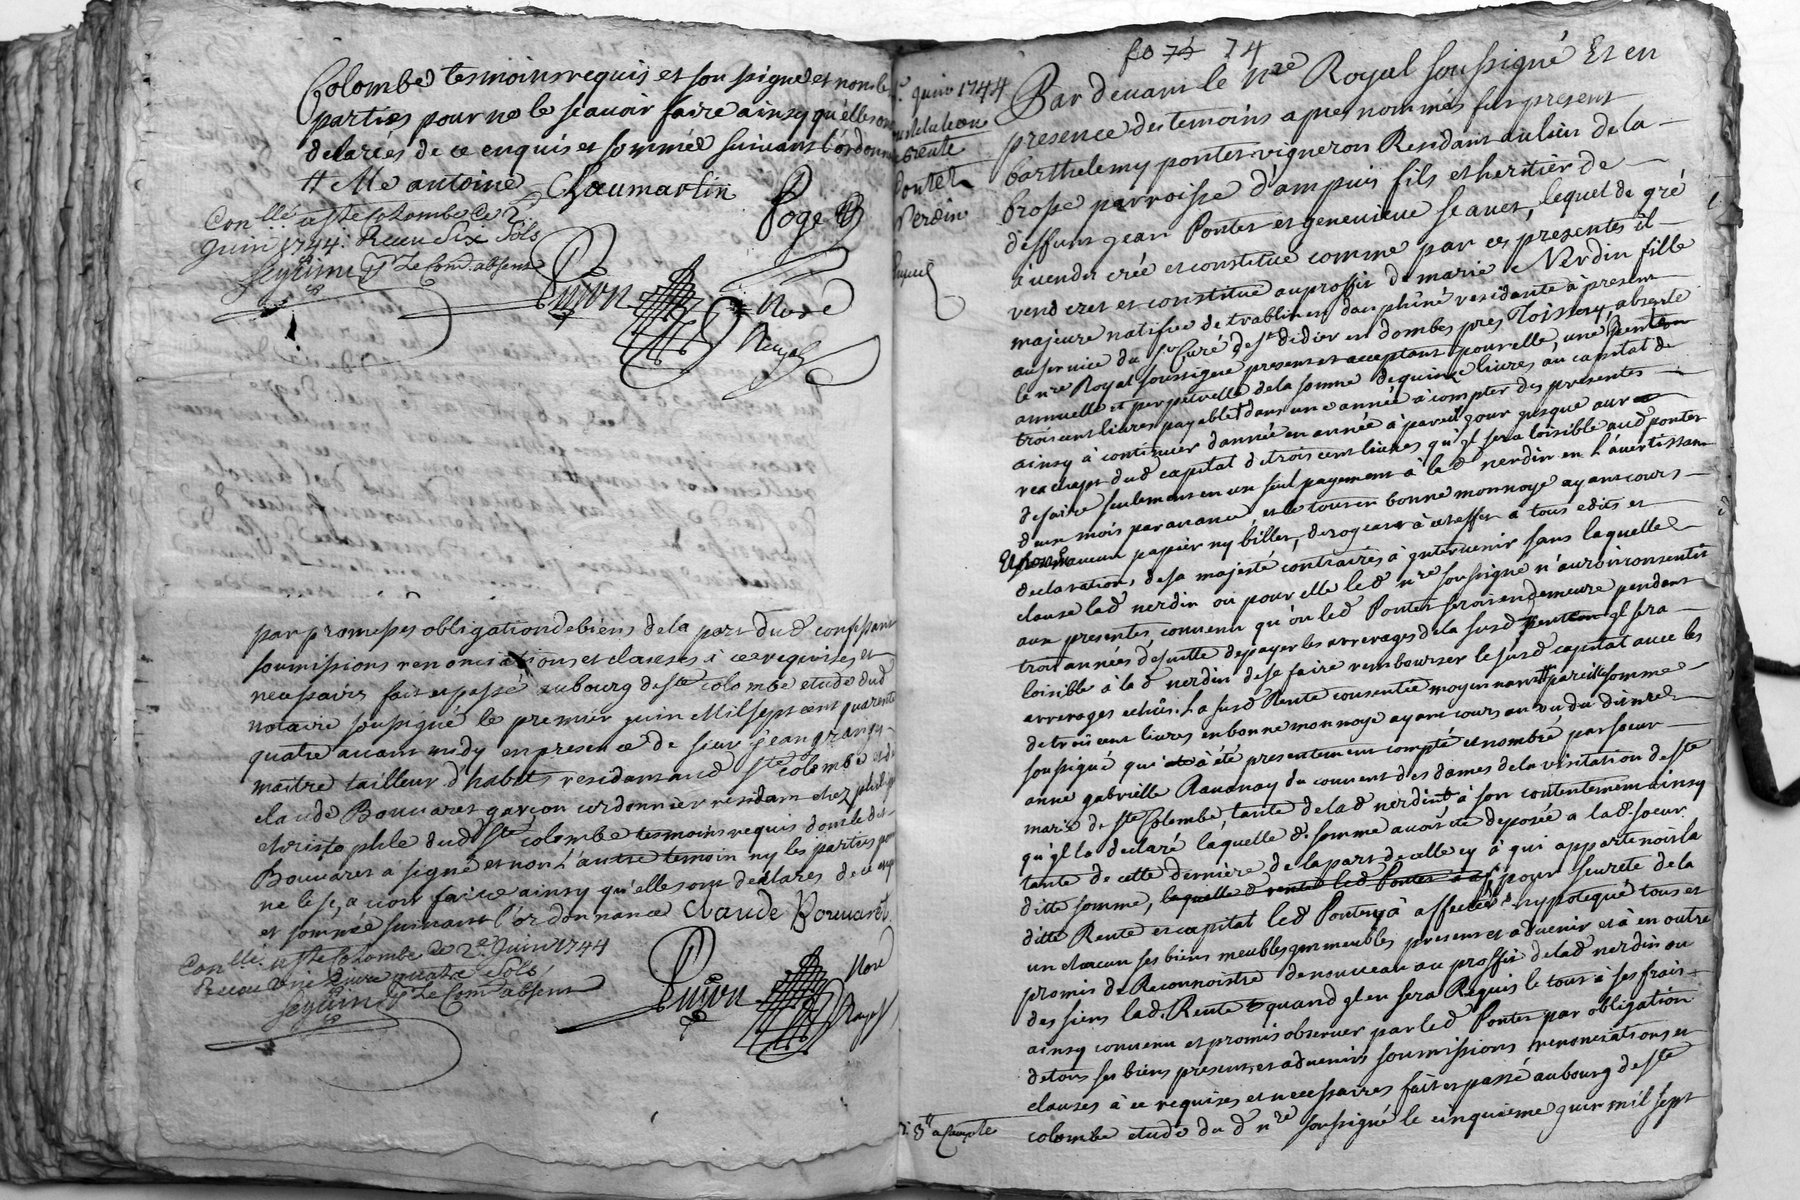 Colombe tesmoins requis et sou signé et non les
parties pour ne le scavoir faire ainsy qu'elles ont
declarées de ce enquis et sommée suivant l'ordonn
Me antoine Chaumartin
Poge
Con.llé a Ste Colombe Ce 2
Juin 1744. Receu Six Sols
Pr Le Com.d absent
Nore
Royal
par promesses obligation de biens de la part dud confessant
soumissions renonciations et clauses à ce requises et
necessaires fait et passé au bourg de Ste colombe etude dud
notaire soussigné le premier juin Mil sept cent quarente
quatre avant midy en presence de sieur jean grangy
maitre tailleur d'habits residant aud Ste colombe et de
claude Bouvaret garçon cordonnier residant chez
christophle dud Ste colombe tesmoins requis dont led
Bouvaret a signé et non L'autre temoin ny les parties pour
ne le scavoir faire ainsy qu'elles ont declarés de ce enq
et sommée suivant l'ordonnance Claude Bouvaret
Con.llé a Ste Colombe Le 2e Juin 1744
Receu Une Livre quatre Sols
Pr Le Com.d absent
Nore
Royal
fo 75 74
juin 1744
Rente
Pontet
Nerdin
Par devant le Nre Royal soussigné Et en
presence des temoins apres nommés fut present
barthelemy pontet vigneron Residant au lieu de la
brosse parroisse d'ampuis fils et heritier de
deffunt jean Pontet et genevieve Seauet, lequel de gré
à vendu créé et constitué comme par ces presentes il
vend crée et constitue au proffit de marie Nerdin fille
majeure natifve de trablin en dauphiné residante à present
au service du sr Curé de St didier en dombes pres Toissey, absente
le nre Royal soussigné present et acceptant pour elle, une Rente
annuelle et perpetuelle de la somme de quinze livres au capital de
trois cent livres payable dans une année à compter des presentes
ainsy à continuer d'année en année à pareil jour jusque au
reachapt dud capital de trois cent livres qu'il sera loisible aud pontet
de faire seulement en un seul payement à lad nerdin en L'avertissant
deux mois par avance et le tout en bonne monnoye ayant cours
Et non en aucun papier ny billet, derogeant à cet effet à tous edits et
declarations de sa majesté contraires à intervenir sans laquelle
clause lad nerdin ou pour elle led nre soussigné n'auroit consentit
aux presentes, convenu qu'où led Pontet seroit en demeure pendant
trois années de suitte de payer les arrerages de la susd rente il sera
loisible à lad nerdin de se faire rembourser le susd capital avec les
arrerages echus. La susd Rente consentie moyennant pareille somme
de trois cent livres en bonne monnoye ayant cours au vu du dit nre
soussigné qui a été presentement compté et nombré par soeur
anne gabrielle Ravanay du couvent des dames de la visitation de Ste
marie de Ste Colombe, tante de lad nerdin à son contentement ainsy
qu'il la declaré laquelle d. somme avoit été deposée a lad. soeur
tante de cette derniere de la part de celle cy à qui appartenoit la
ditte somme, laquelle d rente led Pontet a pour seureté de la
ditte Rente et capital led Pontet à affecté et hypotequé tous et
un chacun ses biens meubles immeubles presents et advenir et à en outre
promis de Reconnoistre de nouveau au proffit de lad nerdin ou
des siens lad. Rente quand il en sera Requis le tout à ses frais
ainsy convenu et promis observer par led Pontet par obligation
de tous ses biens presents et advenirs soumissions renonciations et
clauses à ce requises et necessaires fait et passé au bourg de Ste
colombe etude du d nre soussigné le cinquieme juin mil sept